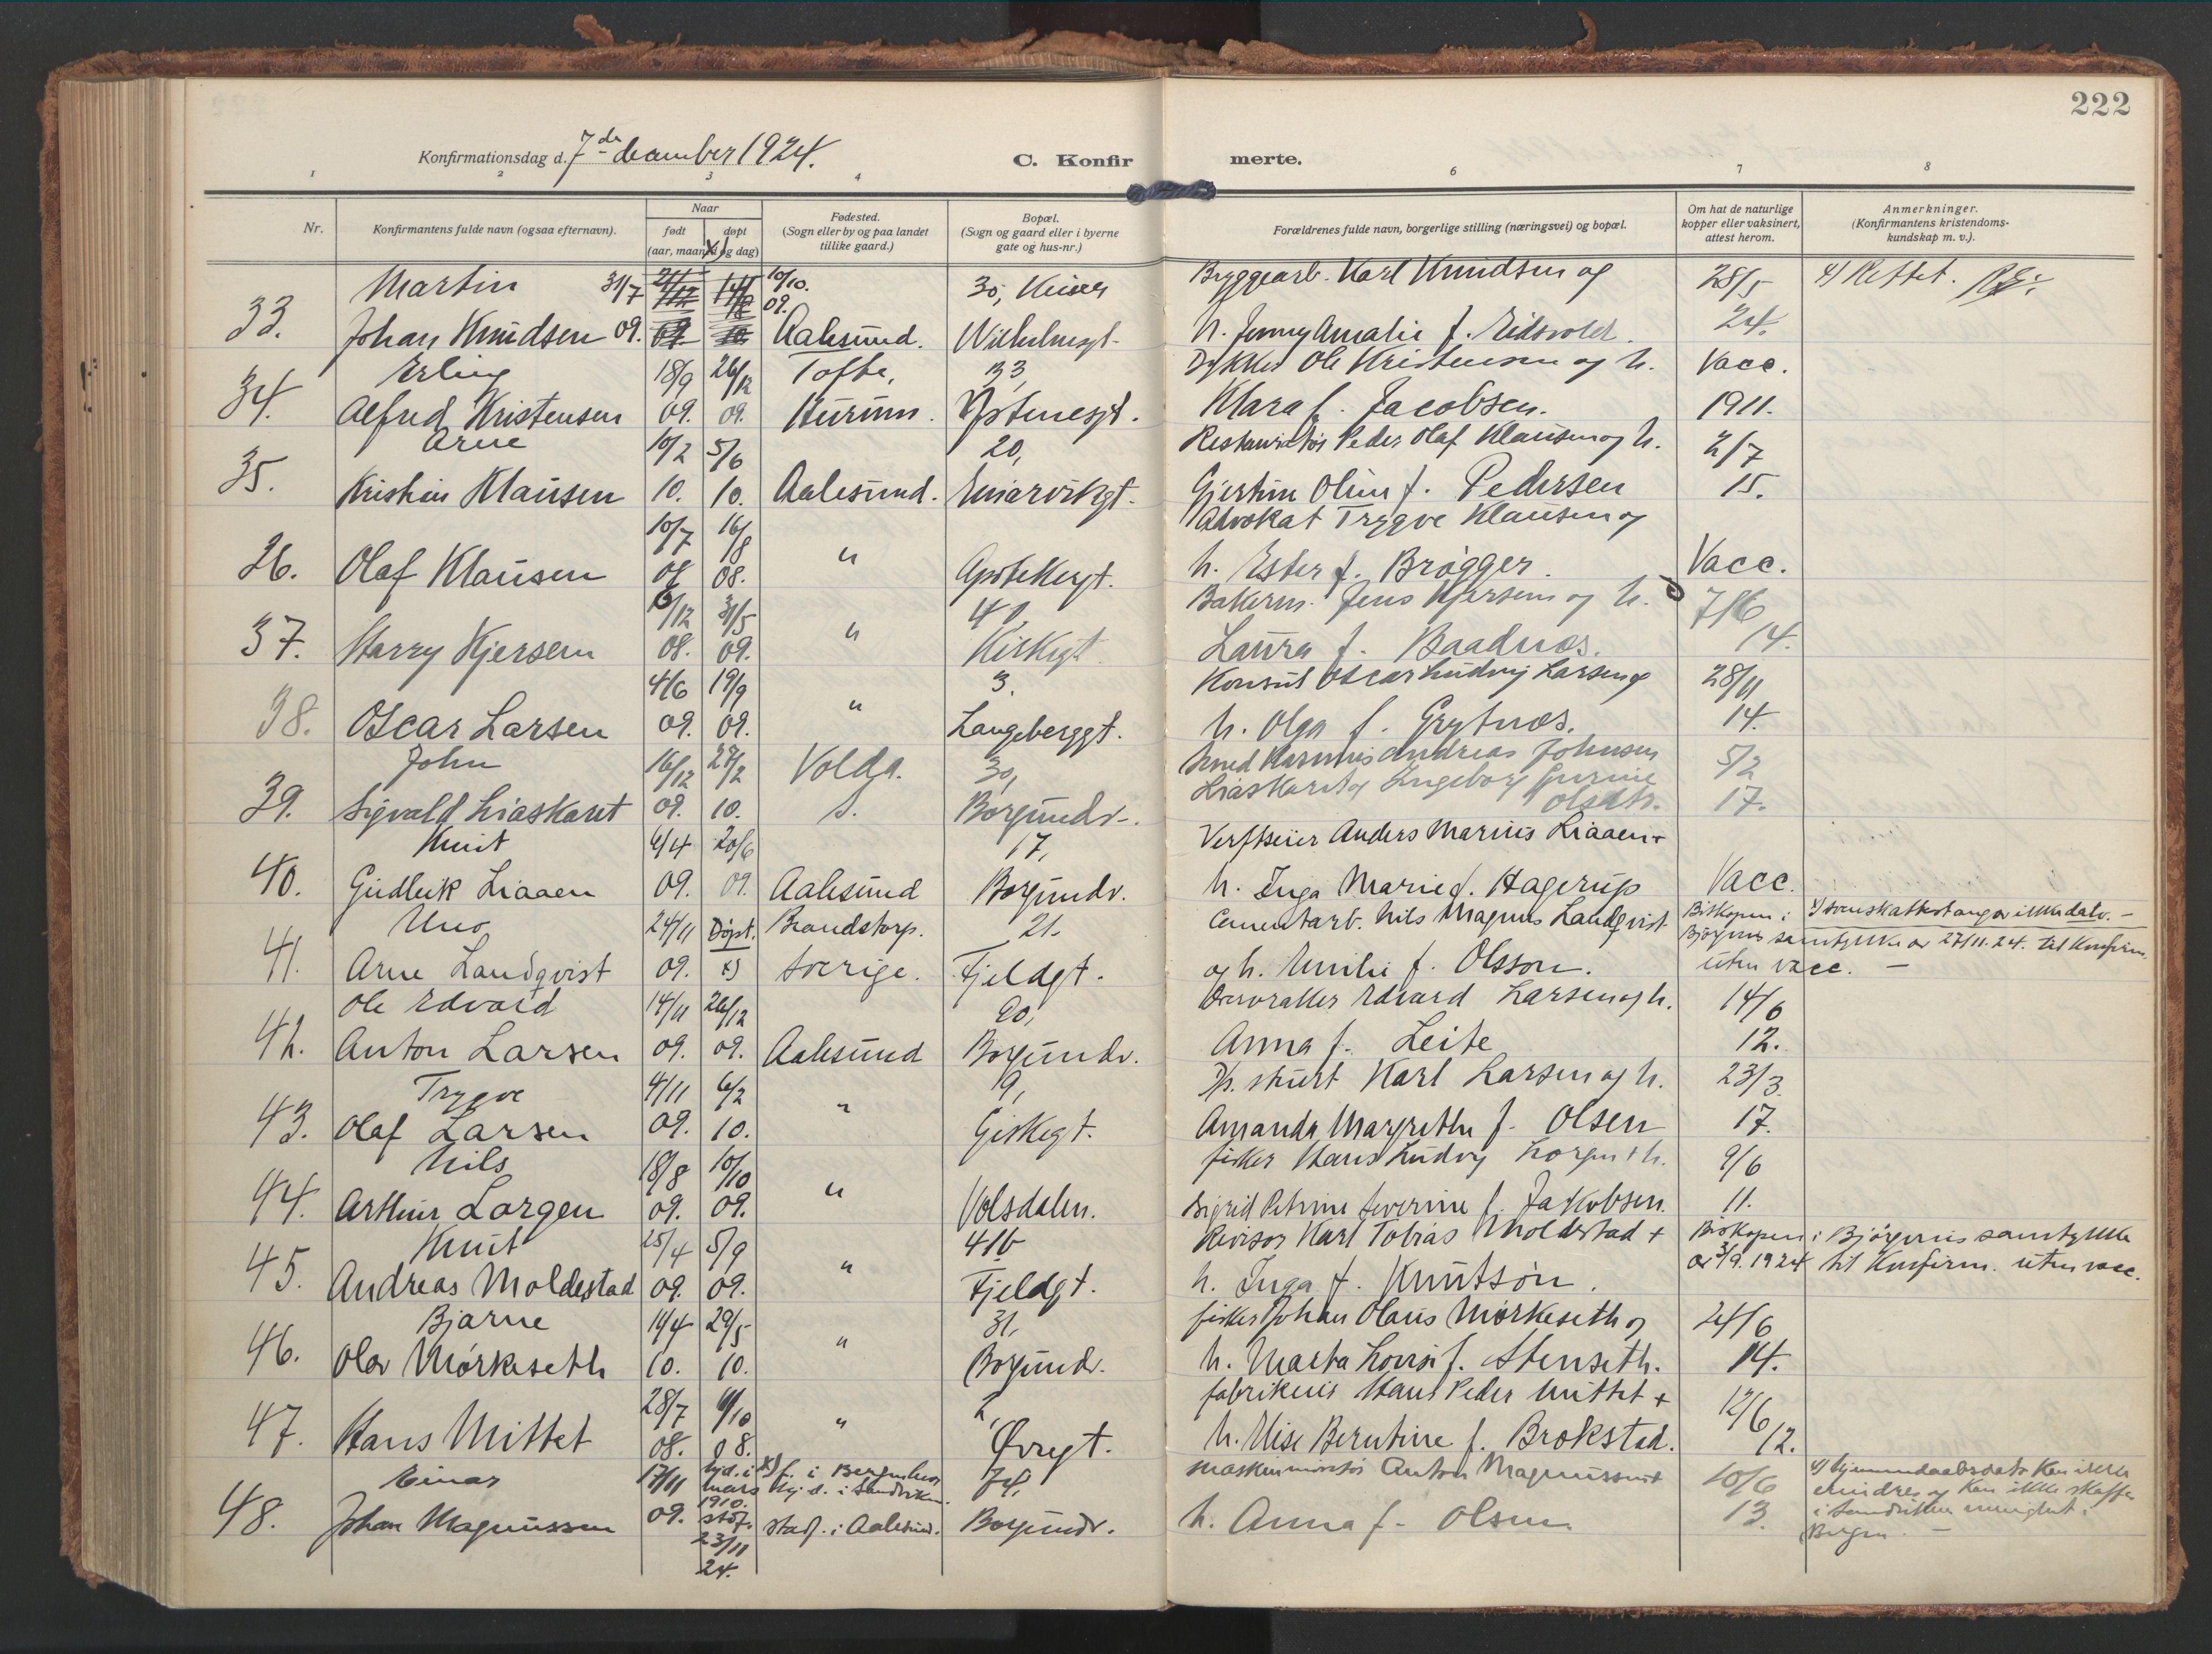 222
Konfirmationsdag d. 7de december 1924.
C. Konfir
merte.
1 2 3 4 6 7 8
Nr.
Konfirmantens fulde navn (ogsaa efternavn).
Naar
født
døpt
(aar, maaned og dag)
Fødested.
(Sogn eller by og paa landet
tillike gaard.)
Bopæl.
(Sogn og gaard eller i byerne
gate og hus-nr.)
Forældrenes fulde navn, borgerlige stilling (næringsvei) og bopæl.
Om hat de naturlige
kopper eller vaksinert,
attest herom.
Anmerkninger.
(Konfirmantens kristendoms-
kundskap m. v.).
Martin 31/7 10/10. 30, Keiser Bryggearb. Karl Knudsen og 28/5 x) Rettet.
33. Johan Knudsen 09. 09. Aalesund. Wilhelmsgt. h. Jenny Amalie f. Eidsvold. 24.
Erling 18/9 26/12 Tofte, 33, Dykker Ole Kristensen og h. Vacc.
34. Alfred Kristensen 09. 09. Hurum. Ystenesgt. Klara f. Jacobsen. 1911.
Arne 10/2 5/6 20, Restauratør Peder Olaf Klausen og h. 2/7
35. Kristian Klausen 10. 10. Aalesund. Einarvikgt. Gjertine Oline f. Pedersen 15.
10/7 16/8 Advokat Trygve Klausen og
36. Olaf Klausen 08 08. " Apotekergt. h. Ester f. Brøgger. Vacc.
/12 31/5 40, Bakerm. Jens Kjersem og h. 7/6
37. Harry Kjersem 08. 09. " Kirkegt. Laura f. Baadnes. 14.
4/6 19/9 3. Konsul Oscar Ludvig Larsen og 28/11
38. Oscar Larsen 09. 09. " Langeberggt. h. Olga f. Grytnes. 14.
John 16/12 27/2 Volda 30, Smed Rasmus Andreas Johnsen 5/2
39. Sigvald Liaskaret 09. 10. s. Borgundv. Liaskaret og Ingeborg Gurine Olsdtr. 17.
Knut 6/4 20/6 17, Verftseier Anders Marius Liaaen +
40. Gudleik Liaaen 09. 09. Aalesund Borgundv. h. Inga Marie f. Hagerup Vacc.
Uno 24/11 Døpt. Brandstorp. 21. Cementarb. Nils Magnus Landqvist Biskopen i x) svensk attest angir ikke dato. —
41. Arne Landqvist 09. x) Sverige. Fjeldgt. og h. Emilie f. Olsson. Bjørgvins samtykke av 27/11.24. til Konfirm.
uten vacc. —
Ole Edvard 14/11 26/12 20, Edvard Larsen og h. 14/6
42. Anton Larsen 09. 09. Aalesund Borgundv. Anna f. Leite 12.
Trygve 4/11 6/2 9, D/s. stuert Karl Larsen og h. 23/3
43. Olaf Larsen 09. 10. " Giskegt. Amanda Margrethe f. Olsen 17.
Nils 18/8 10/10 fisker Hans Ludvig Lorgen + h. 9/6
44. Arthur Lorgen 09. 09. " Volsdalen. Sigrid Petrine Severine f. Jakobsen. 11.
Knut 25/4 5/9 41b Revisor Karl Tobias Moldestad + Biskopen i Bjørgvins samtykke
45. Andreas Moldestad 09. 09. " Fjeldgt. h. Inga f. Knutson. av 3/9. 1924 til Konfirm. uten vacc.
Bjarne 14/4 29/5 31, fisker Johan Olaus Mørkeseth og 24/6
46. Olav Mørkeseth 10. 10. " Borgundv. h. Marta Lovise f. Stenseth. 14.
28/7 /10 2, fabrikeier Hans Peder Mittet + 12/6
47. Hans Mittet 08. 08. " Øvregt. h. Elise Berntine f. Brokstad. 12.
Einar 17/11 hjd. i mars x) f. i Bergen hj. d. i Sandviken. Maskinmontør Anton Magnussen + 10/6 x) Hjemmedaabsdato kan ikke
48. Johan Magnussen 09. 1910. stdf. 23/11 24. stadf. i Aalesund. Borgundv. h. Anna f. Olsen 13. erindres og kan ikke skaffes
i Sandviken menighet.
Bergen. —